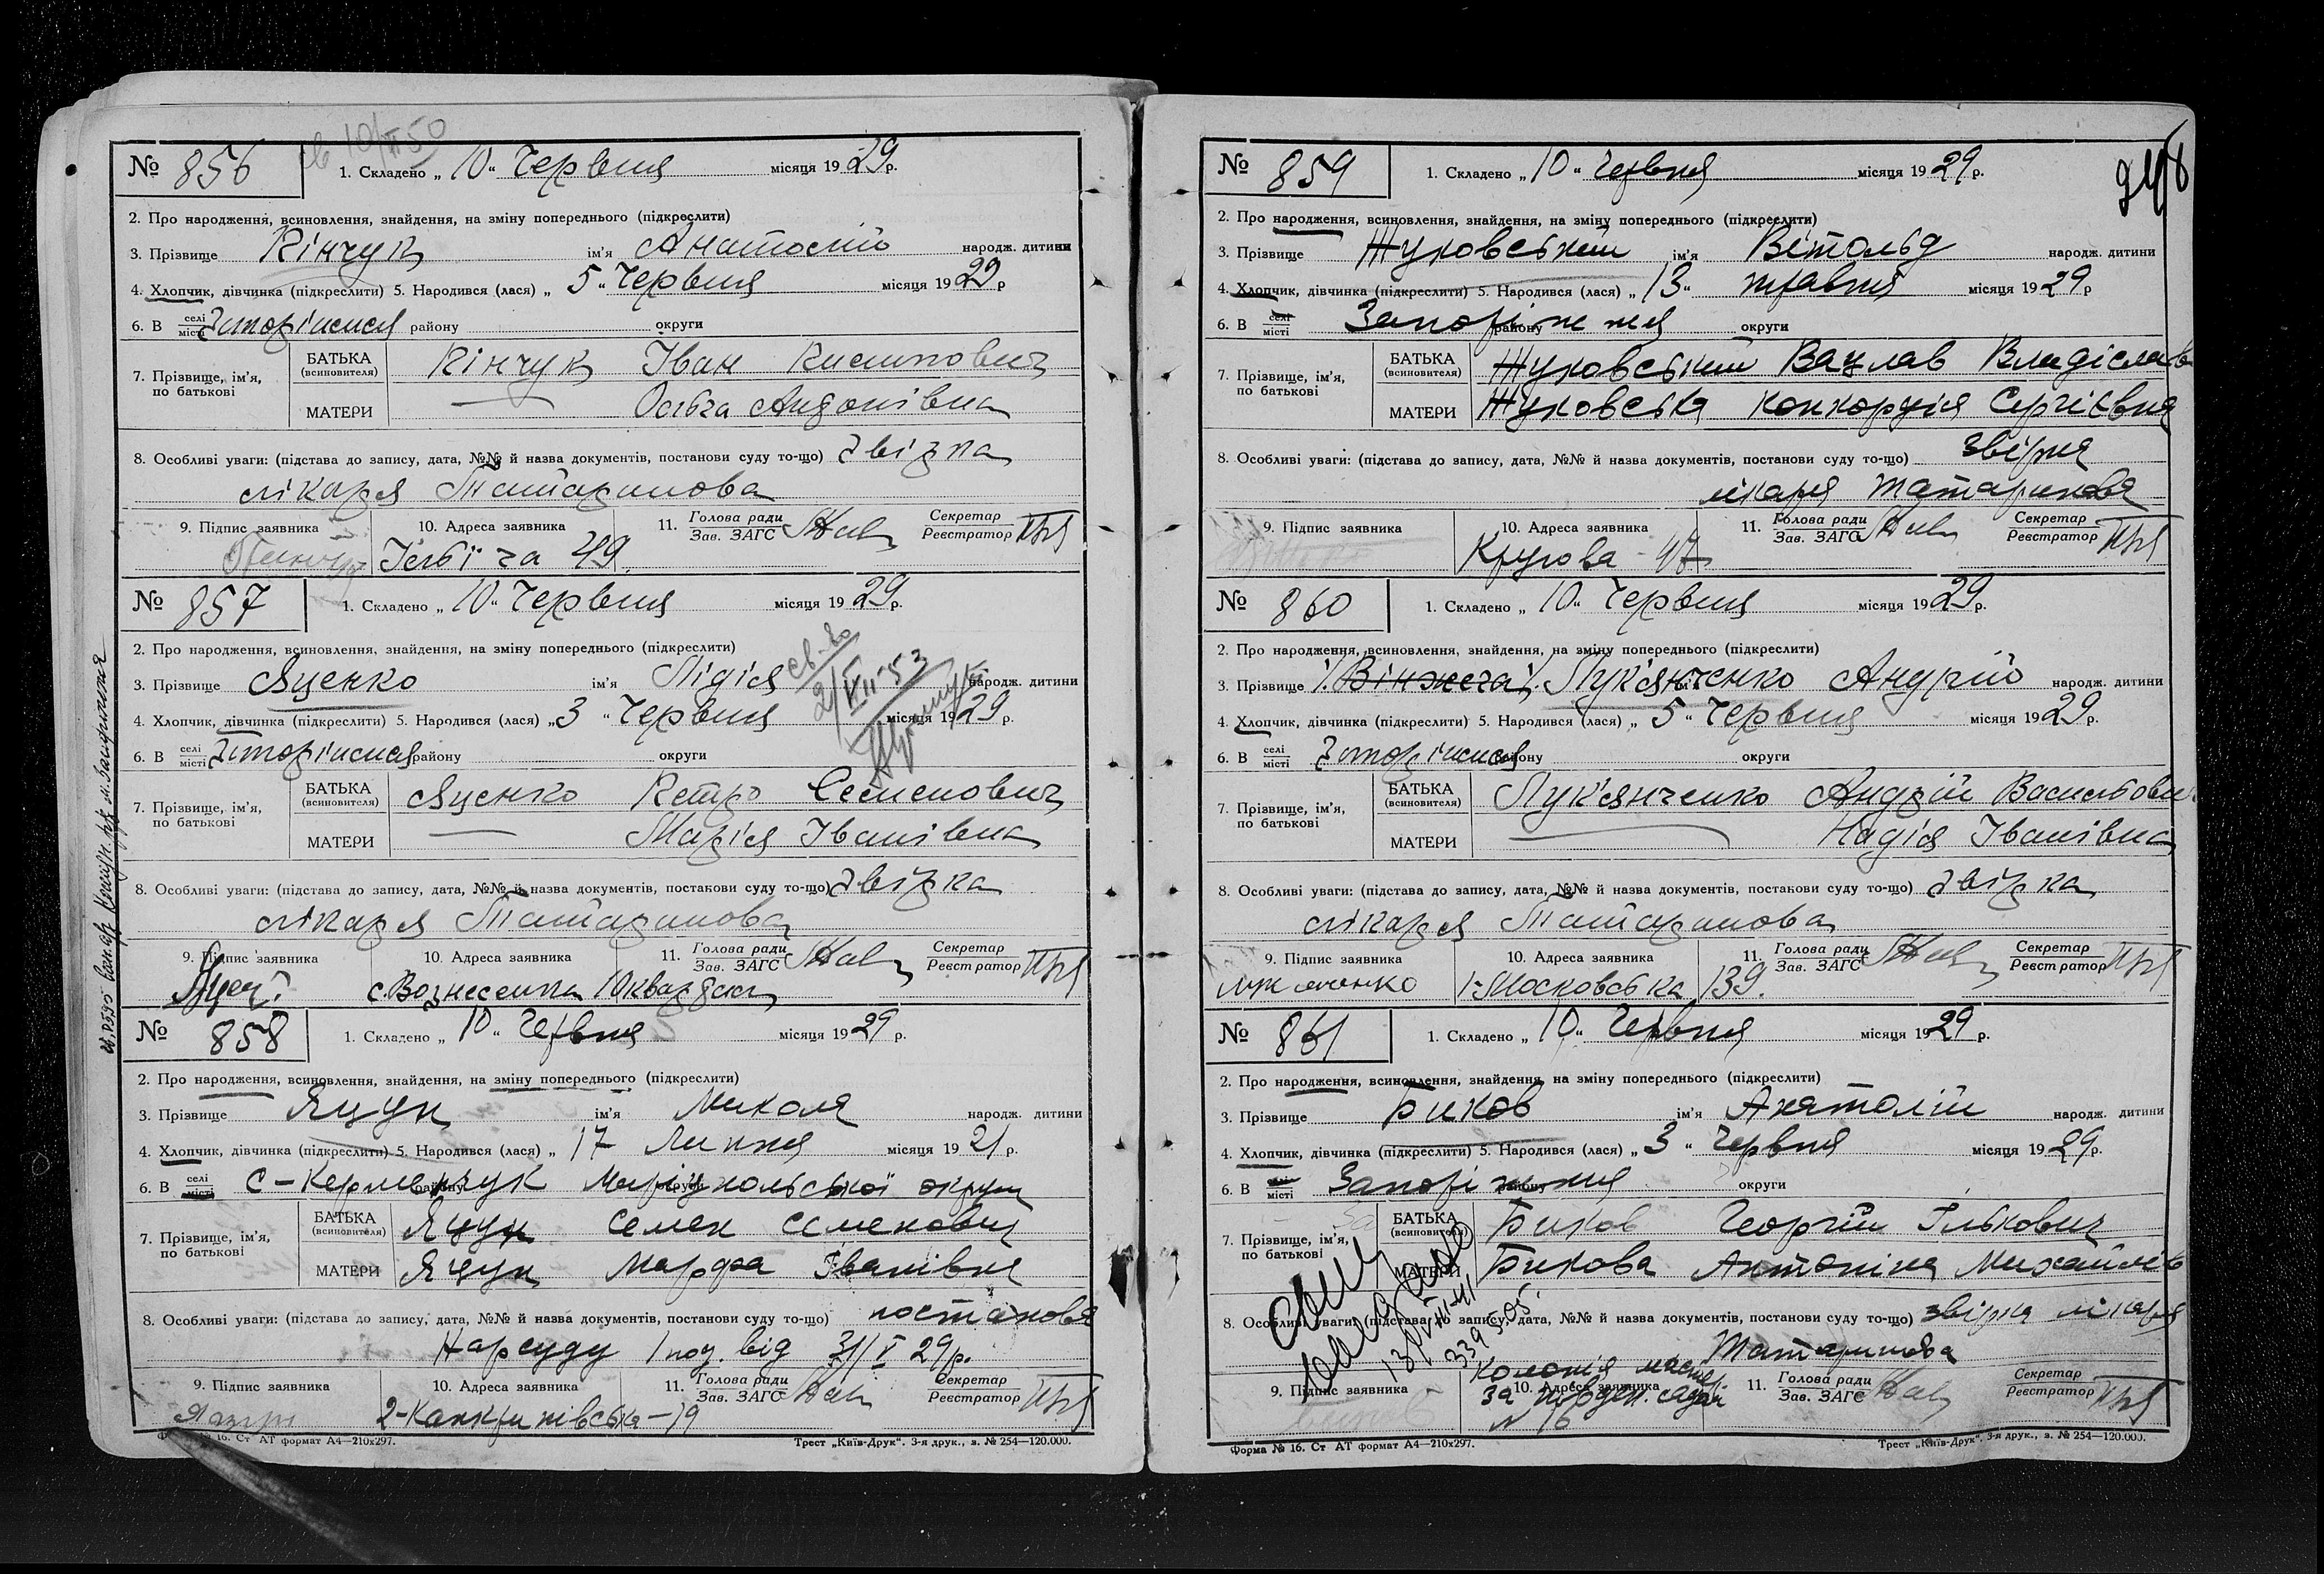 св 10/VI 50
№ 856 1. Складено „ 10 “ Червня місяця 1929 р.
2. Про народження, всиновлення, знайдення, на зміну попереднього (підкреслити)
3. Прізвище Кінчук ім'я Анатолій народж. дитини
4. Хлопчик, дівчинка (підкреслити) 5. Народився (лася) „ 5 “ Червня місяця 1929 р
6. В селі місті Запоріжжя району округи
7. Прізвище, ім'я, по батькові БАТЬКА (всиновителя) Кінчук Іван Кирилович
МАТЕРИ — Ольга Андонівна
8. Особливі уваги: (підстава до запису, дата, №№ й назва документів, постанови суду то-що) Звірка
лікаря Татаринова
9. Підпис заявника 10. Адреса заявника 11. Голова ради Зав. ЗАГС Секретар Реєстратор
Ілліча 49
№ 857 1. Складено „ 10 “ Червня місяця 1929 р.
2. Про народження, всиновлення, знайдення, на зміну попереднього (підкреслити)
3. Прізвище Яценко ім'я Лідія народж. дитини
св-во 2/VII-53
4. Хлопчик, дівчинка (підкреслити) 5. Народився (лася) „ 3 “ Червня місяця 1929 р.
6. В селі місті Запоріжжя району округи
7. Прізвище, ім'я, по батькові БАТЬКА (всиновителя) Яценко Петро Семенович
МАТЕРИ — Марія Іванівна
8. Особливі уваги: (підстава до запису, дата, №№ й назва документів, постанови суду то-що) Звірка
лікаря Татаринова
9. Підпис заявника 10. Адреса заявника 11. Голова ради Зав. ЗАГС Секретар Реєстратор
с. Вознесенка 10
№ 858 1. Складено „ 10 “ Червня місяця 1929 р.
2. Про народження, всиновлення, знайдення, на зміну попереднього (підкреслити)
3. Прізвище Яцун ім'я Микола народж. дитини
4. Хлопчик, дівчинка (підкреслити) 5. Народився (лася) „ 17 Липня місяця 1921 р.
6. В селі місті С-Керменчук району Маріупольської округи
7. Прізвище, ім'я, по батькові БАТЬКА (всиновителя) Яцун Семен Семенович
МАТЕРИ Яцун Марфа Іванівна
8. Особливі уваги: (підстава до запису, дата, №№ й назва документів, постанови суду то-що) постанова
Нарсуду 1 від 31/V 29 р.
9. Підпис заявника 10. Адреса заявника 11. Голова ради Зав. ЗАГС Секретар Реєстратор
Форма № 16. Ст АТ формат А4—210х297. Трест „Київ-Друк“. 3-я друк., з. № 254—120.000.
№ 859 1. Складено „ 10 “ Червня місяця 1929 р.
2. Про народження, всиновлення, знайдення, на зміну попереднього (підкреслити)
3. Прізвище Жуковський ім'я Вітольд народж. дитини
4. Хлопчик, дівчинка (підкреслити) 5. Народився (лася) „ 13 “ травня місяця 1929 р
6. В селі місті Запоріжжя району округи
7. Прізвище, ім'я, по батькові БАТЬКА (всиновителя) Жуковський Вацлав Владіслав
МАТЕРИ Жуковська Конкордія Сергіївна
8. Особливі уваги: (підстава до запису, дата, №№ й назва документів, постанови суду то-що) звірка
лікаря Татаринова
9. Підпис заявника 10. Адреса заявника 11. Голова ради Зав. ЗАГС Секретар Реєстратор
Кругова 47
№ 860 1. Складено „ 10 “ Червня місяця 1929 р.
2. Про народження, всиновлення, знайдення, на зміну попереднього (підкреслити)
3. Прізвище Лук'янченко ім'я Андрій народж. дитини
4. Хлопчик, дівчинка (підкреслити) 5. Народився (лася) „ 5 “ Червня місяця 1929 р.
6. В селі місті Запоріжжя району округи
7. Прізвище, ім'я, по батькові БАТЬКА (всиновителя) Лук'янченко Андрій Васильович
МАТЕРИ — Надія Іванівна
8. Особливі уваги: (підстава до запису, дата, №№ й назва документів, постанови суду то-що) Звірка
лікаря Татаринова
9. Підпис заявника 10. Адреса заявника 11. Голова ради Зав. ЗАГС Секретар Реєстратор
1-Московська 139.
№ 861 1. Складено „ 10 “ Червня місяця 1929 р.
2. Про народження, всиновлення, знайдення, на зміну попереднього (підкреслити)
3. Прізвище Биков ім'я Анатолій народж. дитини
4. Хлопчик, дівчинка (підкреслити) 5. Народився (лася) „ 3 “ Червня місяця 1929 р.
6. В селі місті Запоріжжя району округи
7. Прізвище, ім'я, по батькові БАТЬКА (всиновителя) Биков Георгій Ількович
МАТЕРИ Бикова Антоніна Михайлів
8. Особливі уваги: (підстава до запису, дата, №№ й назва документів, постанови суду то-що) звірка лікаря
Татаринова
9. Підпис заявника 10. Адреса заявника 11. Голова ради Зав. ЗАГС Секретар Реєстратор
Колонія
№ 16
Форма № 16. Ст АТ формат А4—210х297. Трест „Київ-Друк“. 3-я друк., з. № 254—120.000.